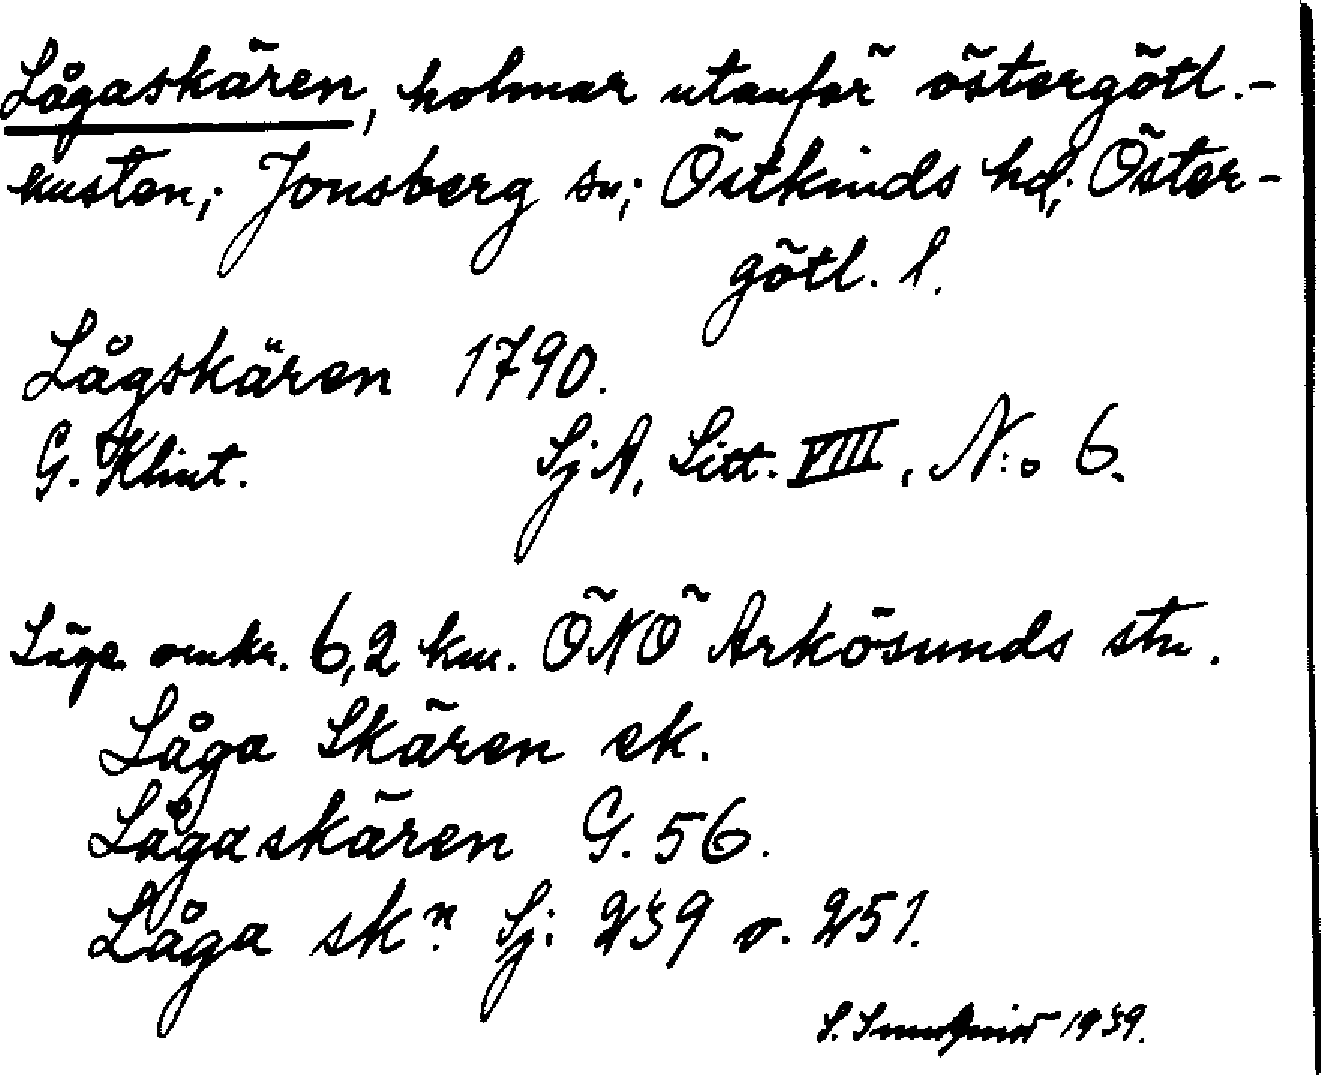 Lågaskären, holmar utanför östergötl.-
kusten; Jonsberg sn; Östkinds hd; Öster-
götl. l.
Lågskären 1790.
G. Klint. SjA, Litt. VIII, N:o 6.
Läge omkr. 6,2 km. ÖNÖ Arkösunds stn.
Låga Skären ek.
Lågaskären G. 56.
Låga skn. Sj. 239 o. 251.
S. 1939.